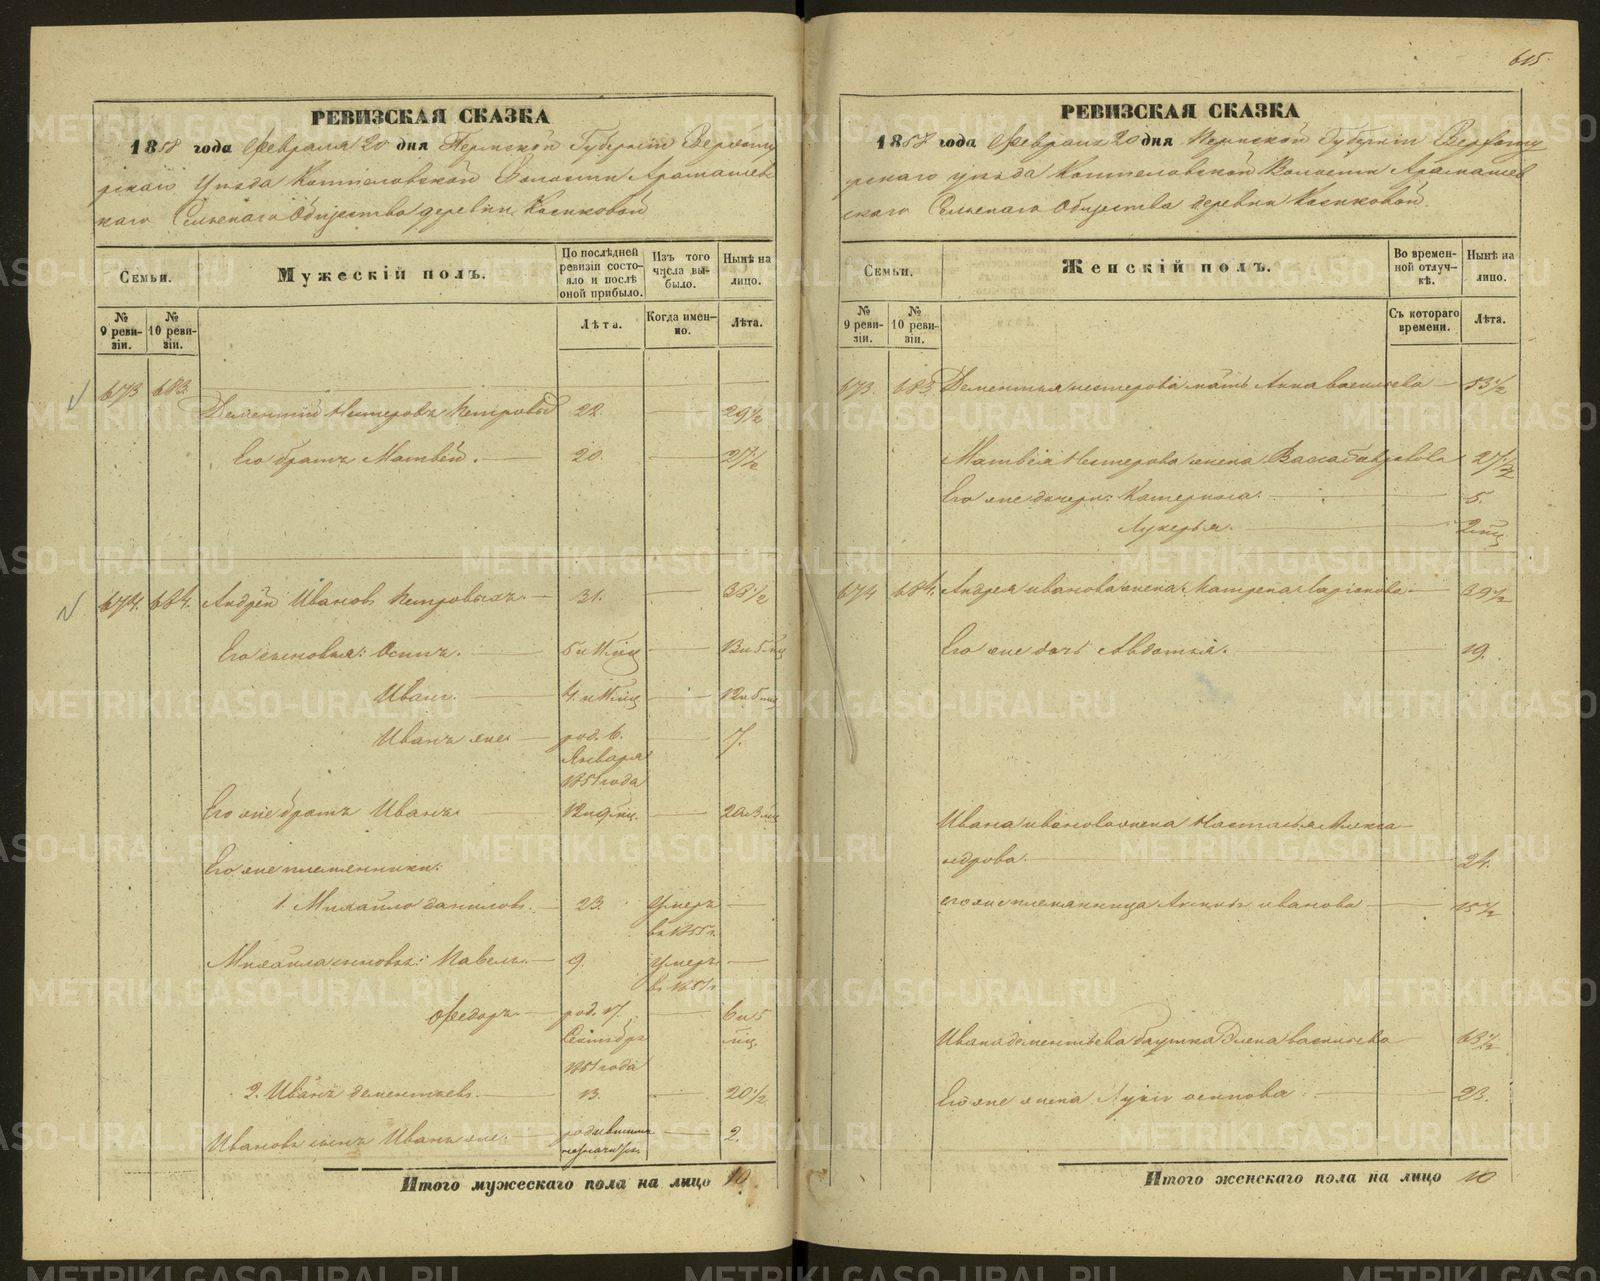 615.
РЕВИЗСКАЯ СКАЗКА
1858 года Февраля 20 дня Пермской Губернии Верхоту
рскаго уѣзда Коптеловской Волости Арамашев
скаго Сельскаго Общества деревни Косиковой
Семьи.
Мужескій полъ.
По послѣдней ревизіи состояло и послѣ оной прибыло.
Изъ того числа выбыло.
Нынѣ на лицо.
№ 9 ревизіи.
№ 10 ревизіи.
Лѣта.
Когда именно.
Лѣта.
673 683.
Дементий Нестеровъ Петровых 22. 29½
Его братъ Матвей. 20. 27½
674. 684. Андрей Ивановъ Петровыхъ. 31. 38½
Его сыновья: Осипъ. 5 и 11 мц 13 и 5 мц
Иванъ. 4. и 11 мц 12 и 5 мц
Иванъ же род. 6. Января 1851 года 7.
Его же братъ Иванъ 12 и 9 мц. 20 и 3 мц
Его же племянники:
1. Михайло Данилов. 23. Умеръ в 1855 г.
Михайла сыновья: Павелъ. 9. Умеръ в 1851 г
Федоръ. род. 17. Сентябр 1851 года 6 и 5 мц.
2. Иванъ Дементьев. 13. 20½
Ивановъ сынъ Иванъ же. 2.
Итого мужескаго пола на лицо 10
РЕВИЗСКАЯ СКАЗКА
1858 года Февраля 20 дня Пермской Губернии Верхоту
рскаго уѣзда Коптеловской Волости Арамашев
скаго Сельскаго Общества деревни Косиковой.
Семьи.
Женскій полъ.
Во временной отлучкѣ.
Нынѣ на лицо.
№ 9 ревизіи.
№ 10 ревизіи.
Съ котораго времени.
Лѣта.
673. 683 Дементья Нестерова мать Анна Васильева 53½
Матвея Нестерова жена Васса 27½
Его же дочери: Катерина. 5.
Лукерья. 2 мц
674 684. Андрея Иванова жена Матрена Ларионова 39½
Его же дочь Авдотья. 19.
Ивана Иванова жена Настасья Алекса
ндрова. 24.
его же племянница Анна Иванова 15½
Ивана Дементьева Елена Васильева 63½
Его же жена Осипова 23.
Итого женскаго пола на лицо 10
METRIKI.GASO-URAL.RU